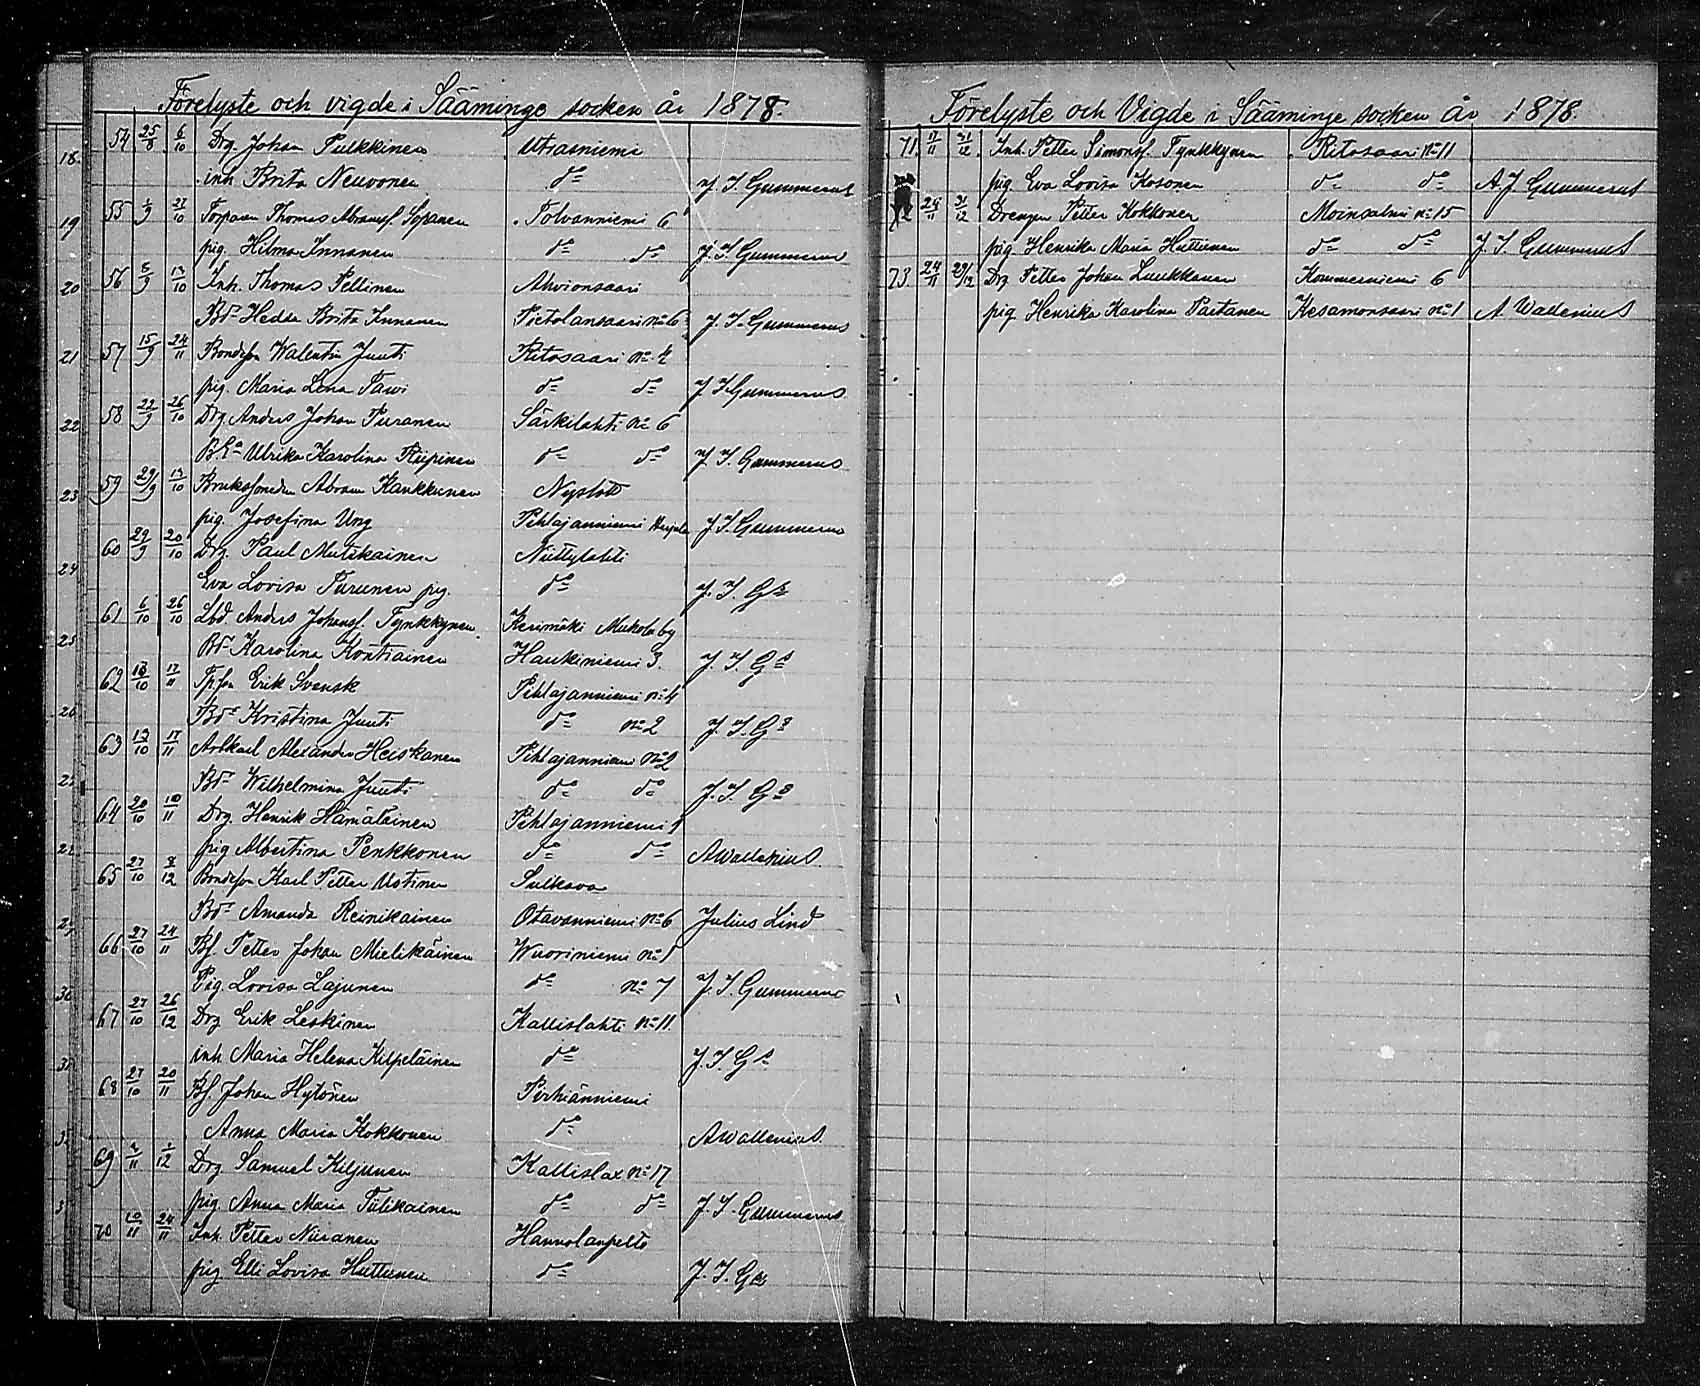 Förelyste och vigde i Sääminge socken år 1878.
54 25/8 6/10 Drg. Johan Pulkkinen Utrasniemi
inh. Brita Neuvonen do J. I. Gummerus
55 1/9 27/10 Torparen Thomas Abramsf. Sopanen Tolvanniemi 6
pig. Hilma Innanen do do J. I. Gummerus
56 8/9 13/10 Inh. Thomas Pellinen Ahvionsaari
Bdr Hedda Brita Innanen Pietolansaari no 6 J. I. Gummerus
57 15/9 24/11 Bondeson Walentin Juuti Ritosaari no 4
pig. Maria Lena Pawi do do J. I. Gummerus
58 22/9 26/10 Drg. Anders Johan Puranen Särkilahti no 6
Ulrika Karolina Riipinen do do J. I. Gummerus
59 29/9 13/10 Brukssmeden Abram Kaukkunen Nyslott
pig. Josefina Ung Pihlajanniemi J. I. Gummerus
60 29/9 20/10 Drg. Paul Mutikainen Niittylahti
Eva Lovisa Turunen pig. do J. I. Gs
61 6/10 26/10 Lbd. Anders Johansf. Tynkkynen Kerimäki Mukola by
Bdr Karolina Kontiainen Haukiniemi 3. J. I. Gs
62 13/10 17/11 Tpson Erik Svensk Pihlajanniemi no 4
Bdr Kristina Juuti do no 2 J. I. Gs
63 13/10 17/11 Arbkarl Alexander Heiskanen Pihlajanniemi no 2
Bdr Wilhelmina Juuti do do J. I. Gs
64 20/10 10/11 Drg. Henrik Hämäläinen Pihlajanniemi 1
pig Albertina Penkkonen do do A Wallenius
65 27/10 8/12 Bondeson Karl Petter Ustinen Sulkava
Bdr Amanda Reinikainen Otavanniemi no 6 Julius Lind
66 27/10 24/11 Bf. Petter Johan Mielikäinen Wuoriniemi no 1
Pig. Lovisa Lajunen do no 7 J. I. Gummerus
67 27/10 26/12 Drg Erik Leskinen Kallislahti no 11.
inh Maria Helena Kilpeläinen do J. I. Gs
68 27/10 20/11 Bf. Johan Hytönen Pirhiänniemi
Anna Maria Kokkonen do A Wallenius
69 3/11 1/12 Drg Samuel Kiljunen Kallislax no 17
pig. Anna Maria Tulikainen do do J. I. Gummerus
70 10/11 24/11 Inh. Petter Niiranen Hannolanpelto
pig Elli Lovisa Huttunen do J. I. Gs
18.
19
20
21
22
23
24
25
26
Förelyste och Vigde i Sääminge socken År 1878.
71. 17/11 31/12 Inh. Petter Simonsf. Tynkkynen Ritosaari no 11
pig. Eva Lovisa Kosonen do do A. J Gummerus
24/11 31/12 Drengen Petter Kokkonen Moinsalmi no 15
pig Henrika Maria Huttunen do do J. I. Gummerus
73. 24/11 29/12 Drg Petter Johan Luukkanen Kommerniemi 6
pig Henrika Karolina Partanen Kesamonsaari no 1 A Wallenius